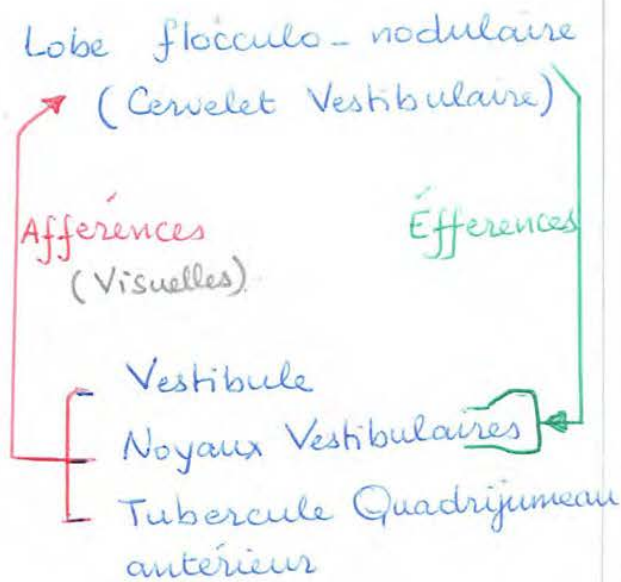 Lobe flocculo-nodulaire
(Cervelet Vestibulaire)
Afférences
Éfférences
(Visuelles)
Vestibule
Noyaux Vestibulaires
Tubercule Quadrijumeau
antérieur